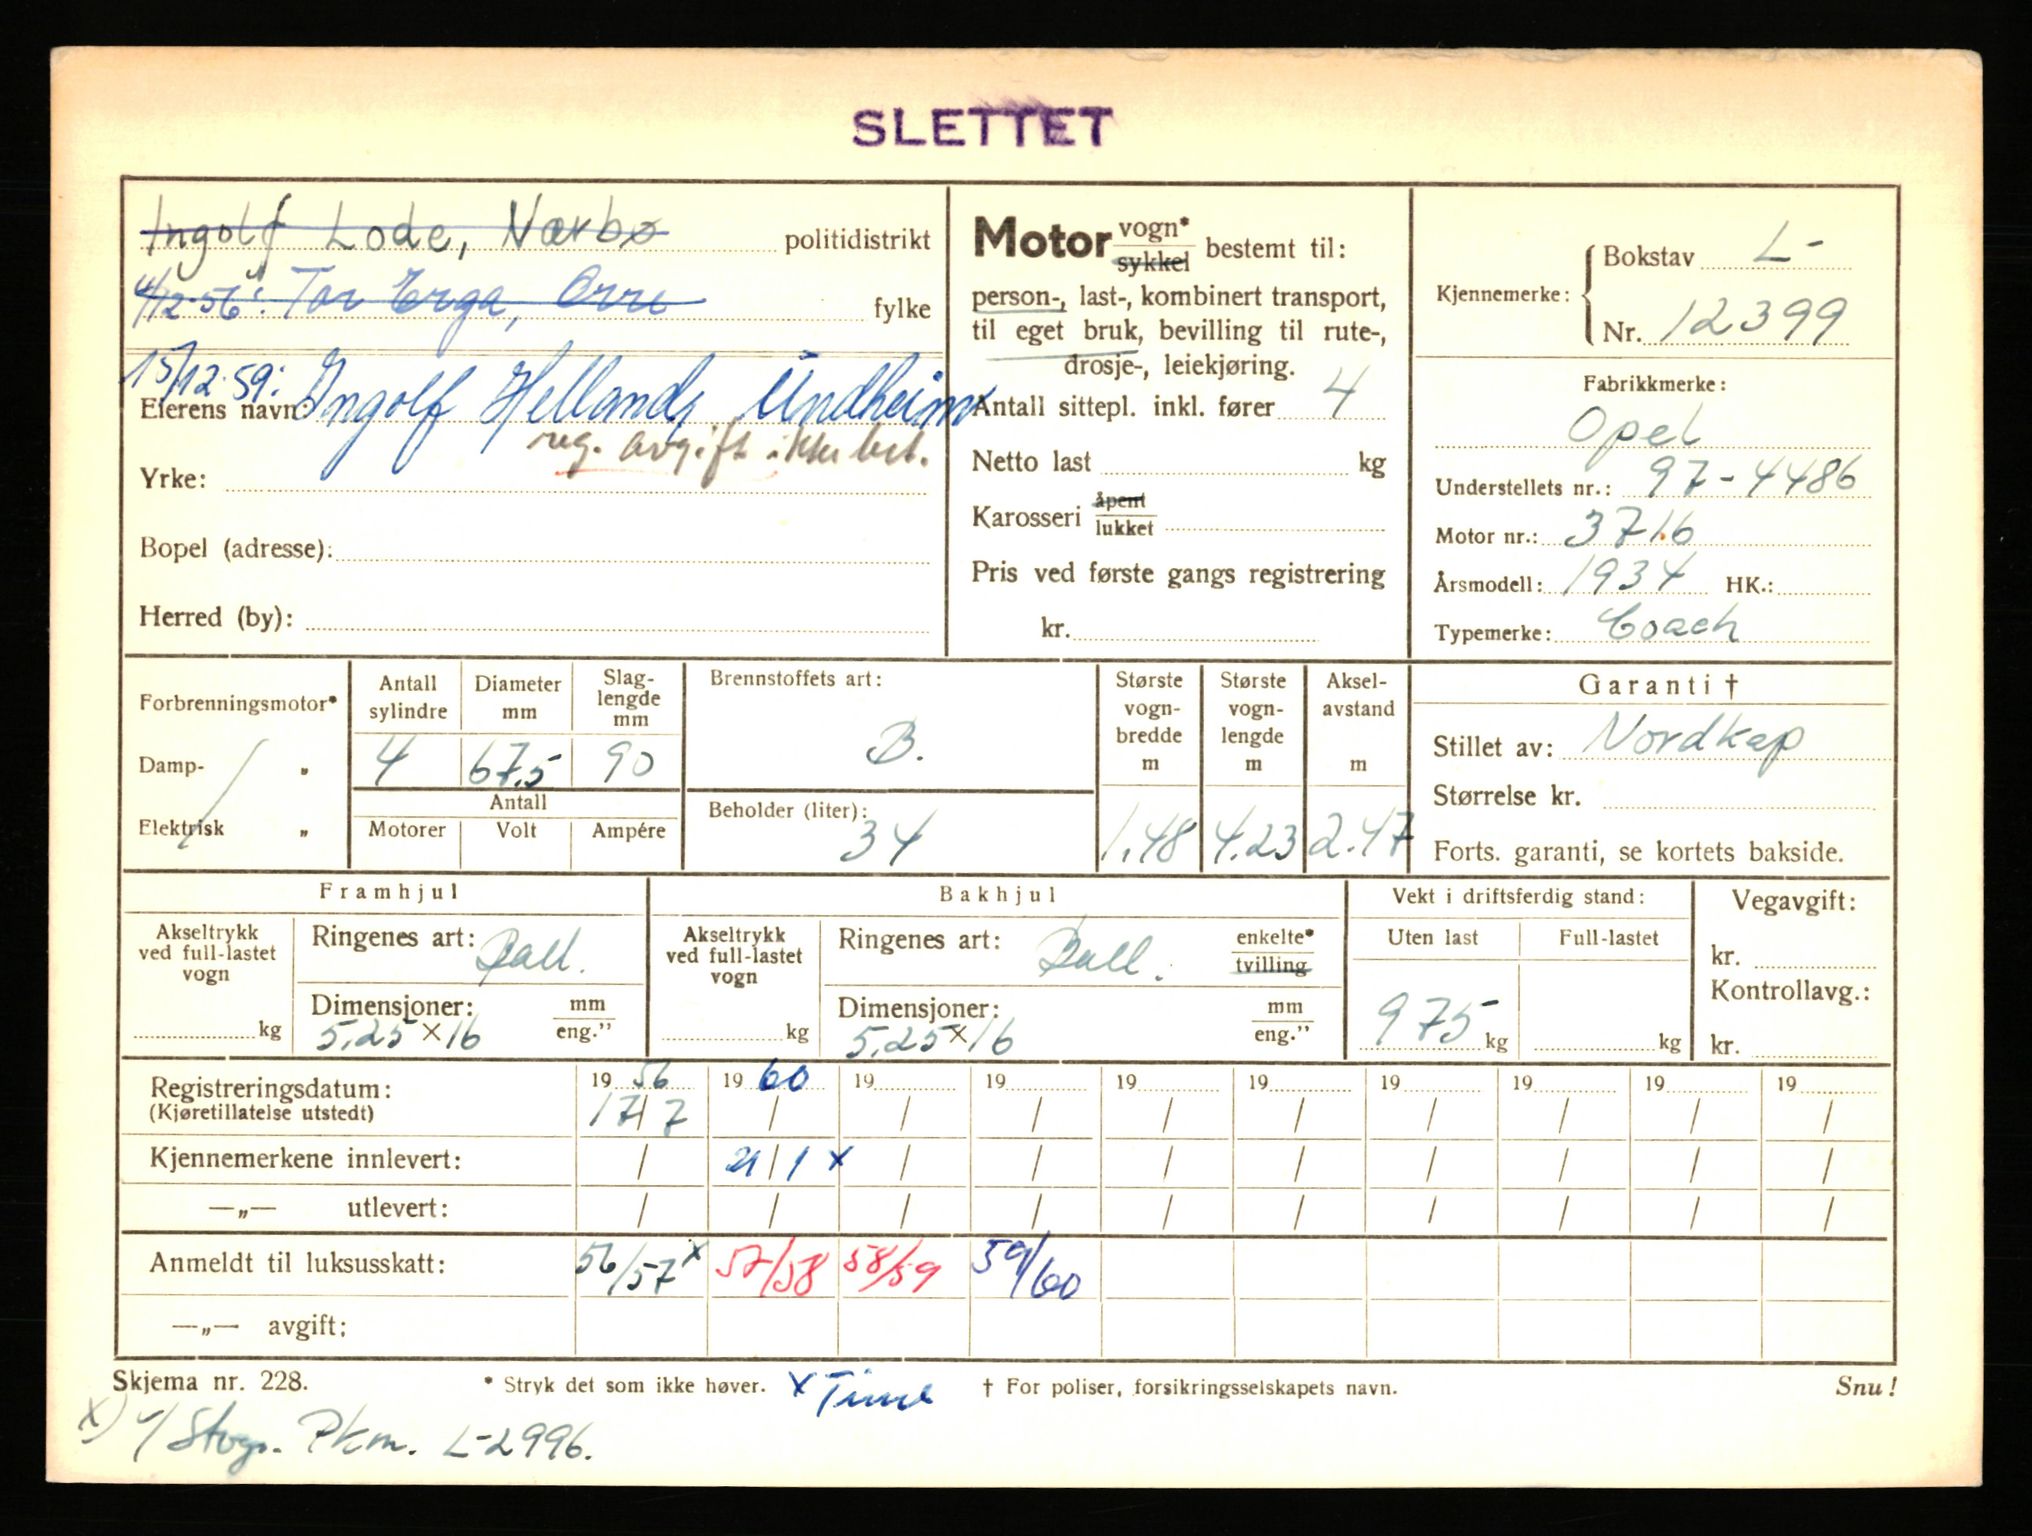 SLETTET
Ingolf Lode, Nærbø politidistrikt
4/12-56: Tor Erga, Orre fylke
15/12.59: Eierens navn: Ingolf Helland, Undheim
reg. avgift ikke bet.
Yrke:
Bopel (adresse):
Herred (by):
Motor vogn* sykkel bestemt til:
person-, last-, kombinert transport,
til eget bruk, bevilling til rute-,
drosje-, leiekjøring.
Antall sittepl. inkl. fører 4
Netto last kg
Karosseri åpent lukket
Pris ved første gangs registrering
kr.
Kjennemerke: Bokstav L-
Nr. 12399
Fabrikkmerke:
Opel
Understellets nr.: 97-4486
Motor nr.: 3716
Årsmodell: 1934 HK.:
Typemerke: Coach
Forbrenningsmotor*
Damp- „
Elektrisk „
Antall sylindre
4
Diameter mm
67.5
Slag-lengde mm
90
Antall
Motorer Volt Ampére
Brennstoffets art:
B.
Beholder (liter):
34
Største vogn-bredde m
1.48
Største vogn-lengde m
4.23
Aksel-avstand m
2.47
Garanti †
Stillet av: Nordkap
Størrelse kr.
Forts. garanti, se kortets bakside.
Framhjul
Akseltrykk ved full-lastet vogn
kg
Ringenes art: Ball.
Dimensjoner: mm
5.25 x 16 eng.”
Bakhjul
Akseltrykk ved full-lastet vogn
kg
Ringenes art: Ball. enkelte* tvilling
Dimensjoner: mm
5.25 x 16 eng.”
Vekt i driftsferdig stand:
Uten last Full-lastet
975 kg kg
Vegavgift:
kr.
Kontrollavg.:
kr.
Registreringsdatum: 19 56 19 60 19 19 19 19 19 19 19 19
(Kjøretillatelse utstedt) 17/7 / / / / / / / / /
Kjennemerkene innlevert: / 21/1 x / / / / / / / /
—„— utlevert: / / / / / / / / / /
Anmeldt til luksusskatt: 56/57 x 57/58 58/59 59/60
—„— avgift;
Skjema nr. 228. * Stryk det som ikke høver. x Time † For poliser, forsikringsselskapets navn. Snu!
x) Stvgn. Pkm. L-2996.